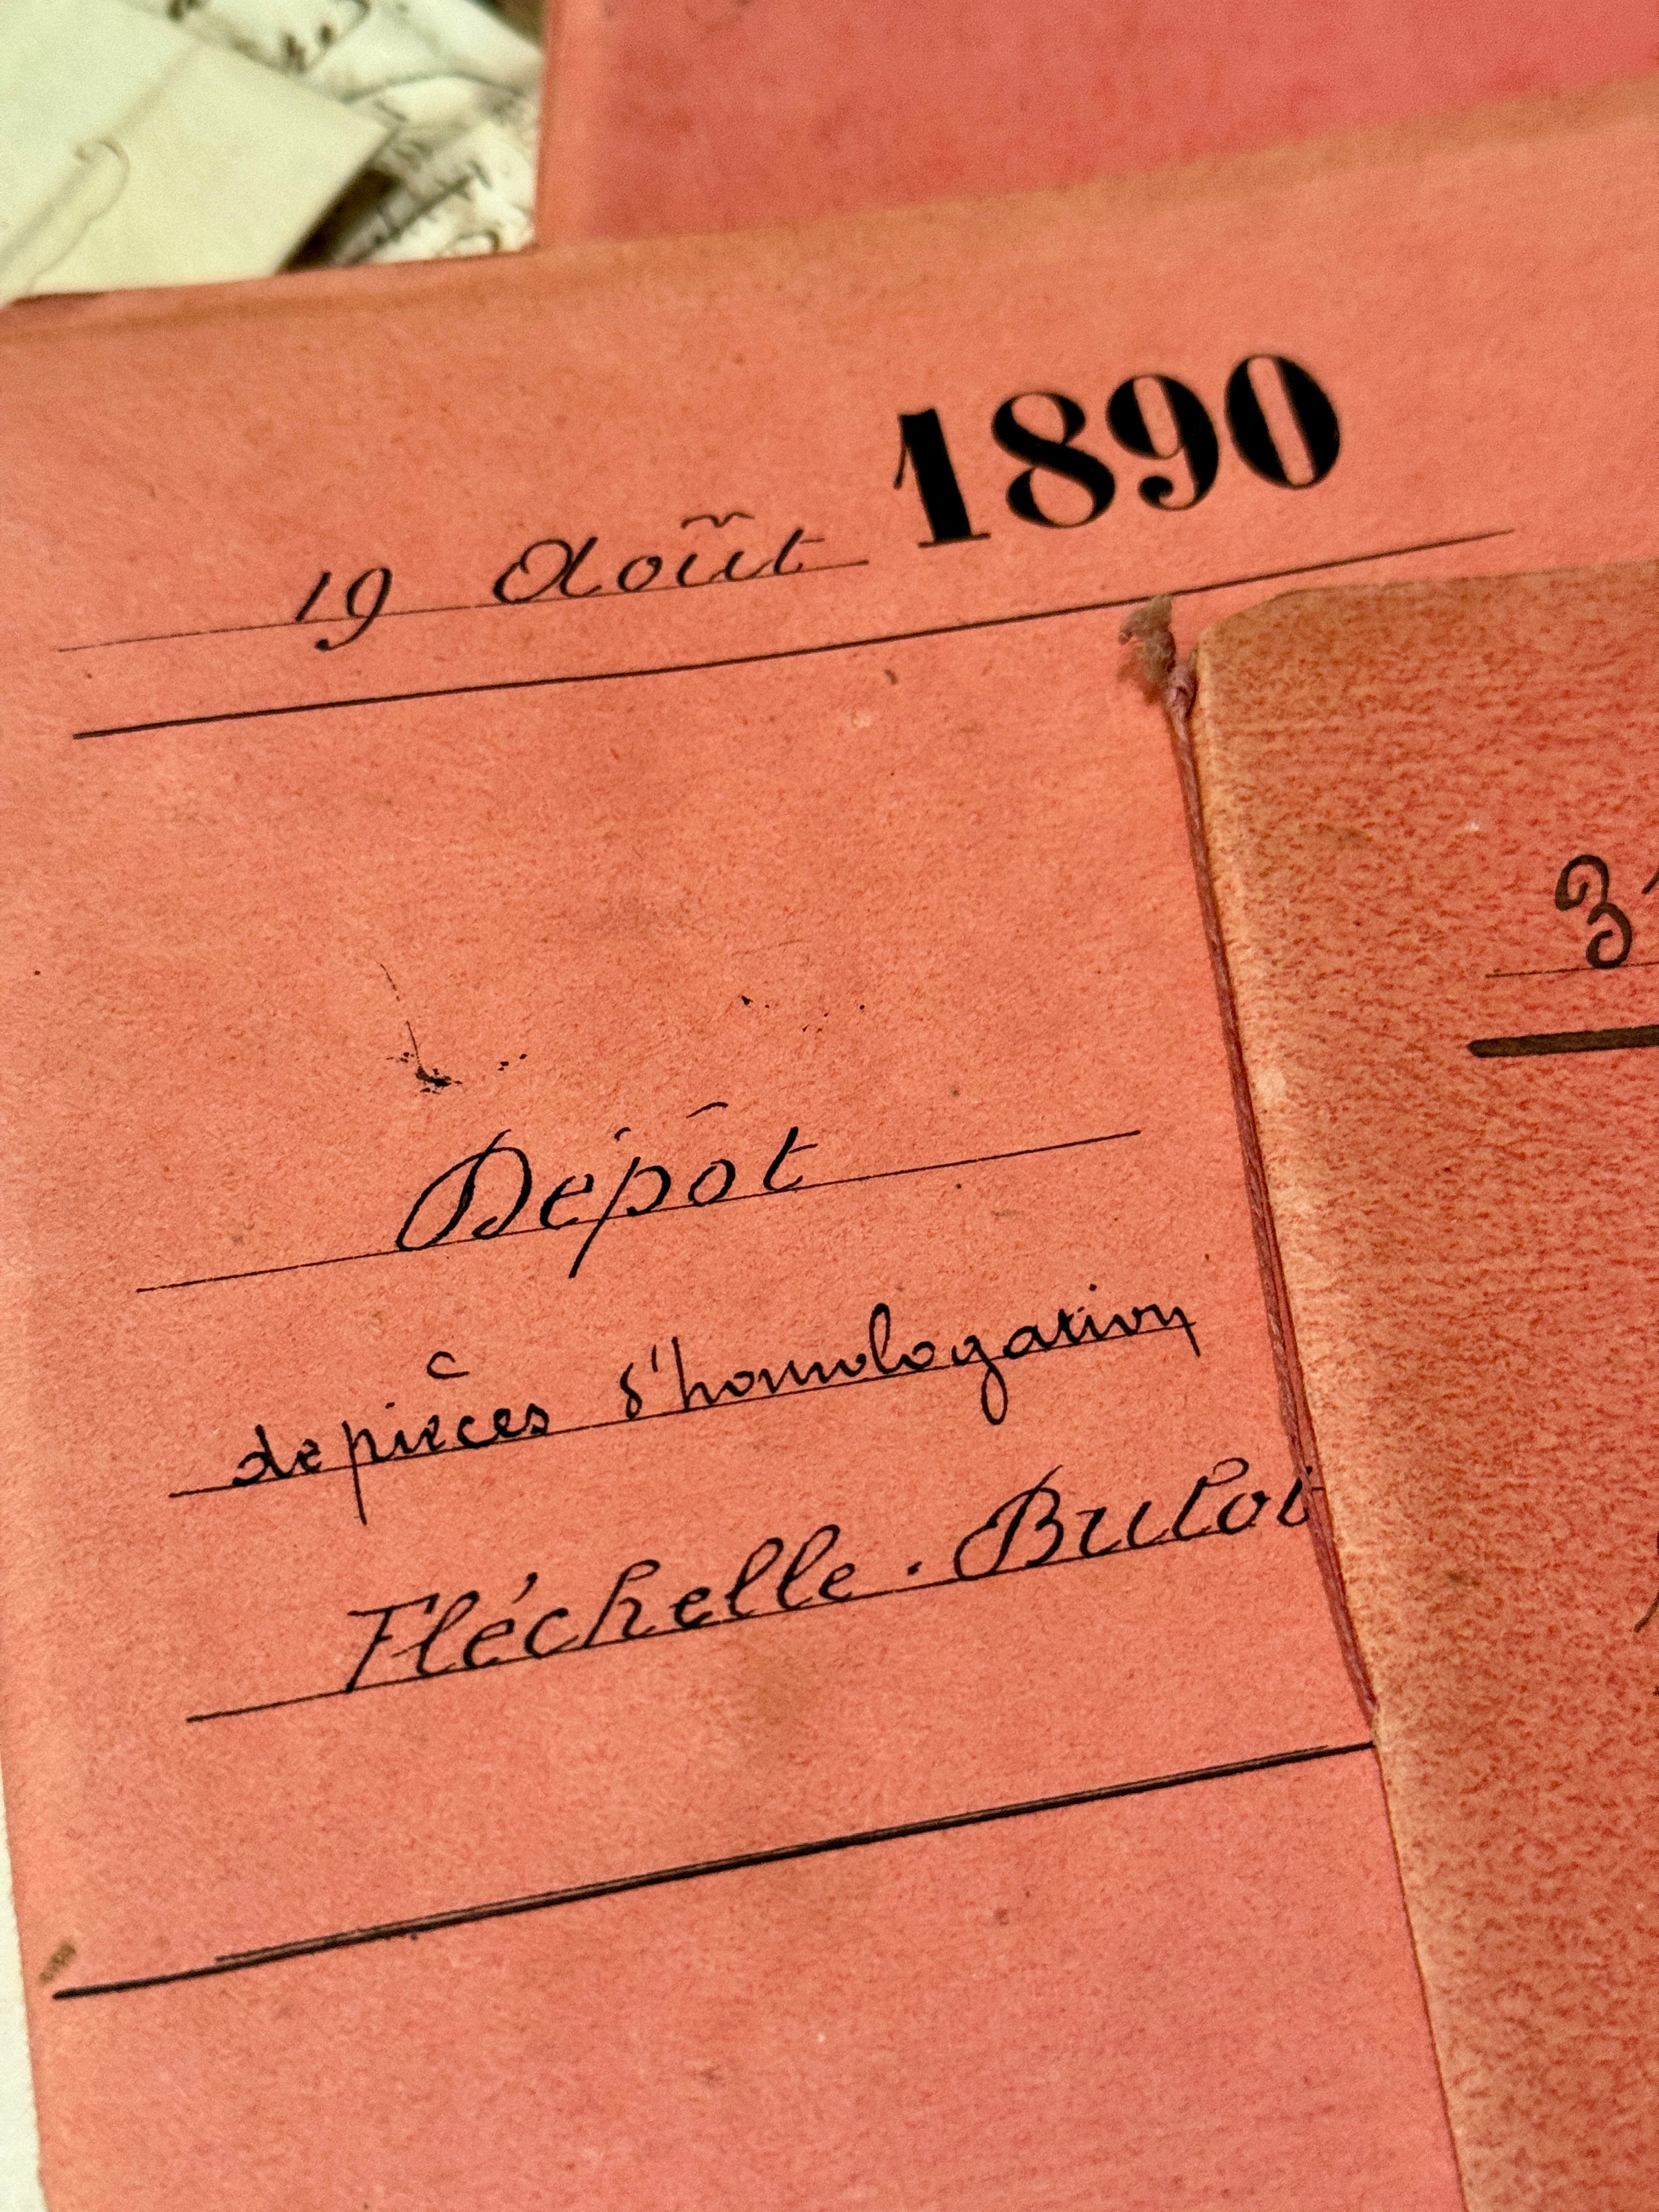 19 Août 1890
Dépôt
de pièces d'homologation
Fléchelle. Buloi
3